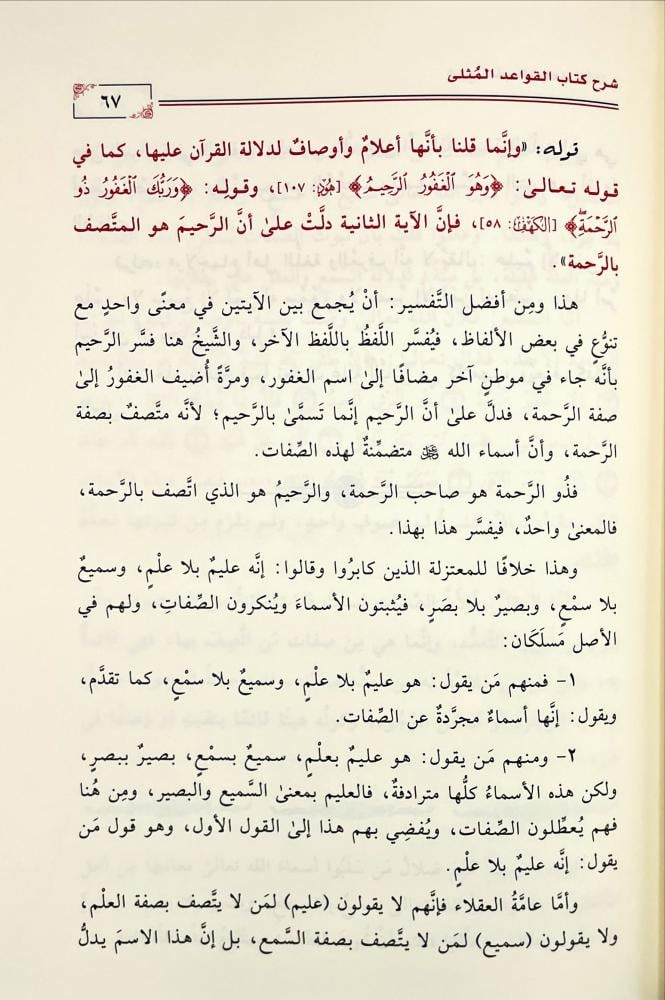 شرح كتاب القواعد المُثلى
٦٧
قوله: «وإنَّما قلنا بأنَّها أعلامٌ وأوصافٌ لدلالة القرآن عليها، كما في
قوله تعالىٰ: ﴿وَهُوَ ٱلْغَفُورُ ٱلرَّحِيمُ﴾ [هُود: ١٠٧]، وقولِه: ﴿وَرَبُّكَ ٱلْغَفُورُ ذُو
ٱلرَّحْمَةِ﴾ [الكهف: ٥٨]، فإنَّ الآية الثانية دلَّتْ علىٰ أنَّ الرَّحيمَ هو المتَّصف
بالرَّحمة».
هذا ومِن أفضل التَّفسير: أنْ يُجمع بين الآيتين في معنًى واحدٍ مع
تنوُّعٍ في بعض الألفاظ، فيُفسَّر اللَّفظُ باللَّفظ الآخر، والشَّيخُ هنا فسَّر الرَّحيم
بأنَّه جاء في موطنٍ آخر مضافًا إلىٰ اسم الغفور، ومرَّةً أُضيف الغفورُ إلىٰ
صفة الرَّحمة، فدلَّ علىٰ أنَّ الرَّحيم إنَّما تَسمَّىٰ بالرَّحيم؛ لأنه متَّصفٌ بصفة
الرَّحمة، وأنَّ أسماء الله ﷻ متضمِّنةٌ لهذه الصِّفات.
فذُو الرَّحمة هو صاحب الرَّحمة، والرَّحيمُ هو الذي اتَّصف بالرَّحمة،
فالمعنىٰ واحدٌ، فيفسَّر هذا بهذا.
وهذا خلافًا للمعتزلة الذين كابرُوا وقالوا: إنَّه عليمٌ بلا علْمٍ، وسميعٌ
بلا سمْعٍ، وبصيرٌ بلا بصَرٍ، فيُثبتون الأسماءَ ويُنكرون الصِّفاتِ، ولهم في
الأصل مَسلَكَان:
١- فمنهم مَن يقول: هو عليمٌ بلا علْمٍ، وسميعٌ بلا سمْعٍ، كما تقدَّم،
ويقول: إنَّها أسماءٌ مجرَّدةٌ عن الصِّفات.
٢- ومنهم مَن يقول: هو عليمٌ بعلْمٍ، سميعٌ بسمْعٍ، بصيرٌ ببصرٍ،
ولكن هذه الأسماءُ كلُّها مترادفةٌ، فالعليم بمعنىٰ السَّميع والبصير، ومِن هُنا
فهم يُعطِّلون الصِّفات، ويُفضِي بهم هذا إلىٰ القول الأول، وهو قول مَن
يقول: إنَّه عليمٌ بلا علْمٍ.
وأمَّا عامَّةُ العقلاء فإنَّهم لا يقولون (عليم) لمَن لا يتَّصف بصفة العلْم،
ولا يقولون (سميع) لمَن لا يتَّصف بصفة السَّمع، بل إنَّ هذا الاسمَ يدلُّ